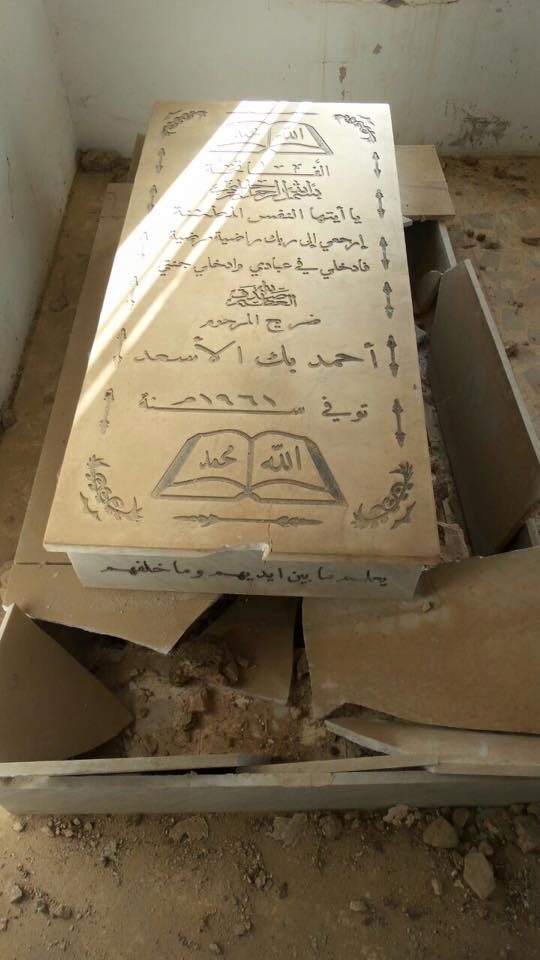 الله محمد
الفاتحة
بسم الله الرحمن الرحيم
يا أيتها النفس المطمئنة
إرجعي إلى ربك راضية مرضية
فادخلي في عبادي وادخلي جنتي
صدق الله العظيم
ضريح المرحوم
أحمد بك الأسعد
توفي سنة ١٩٦١م
الله محمد
يعلم ما بين ايديهم وما خلفهم